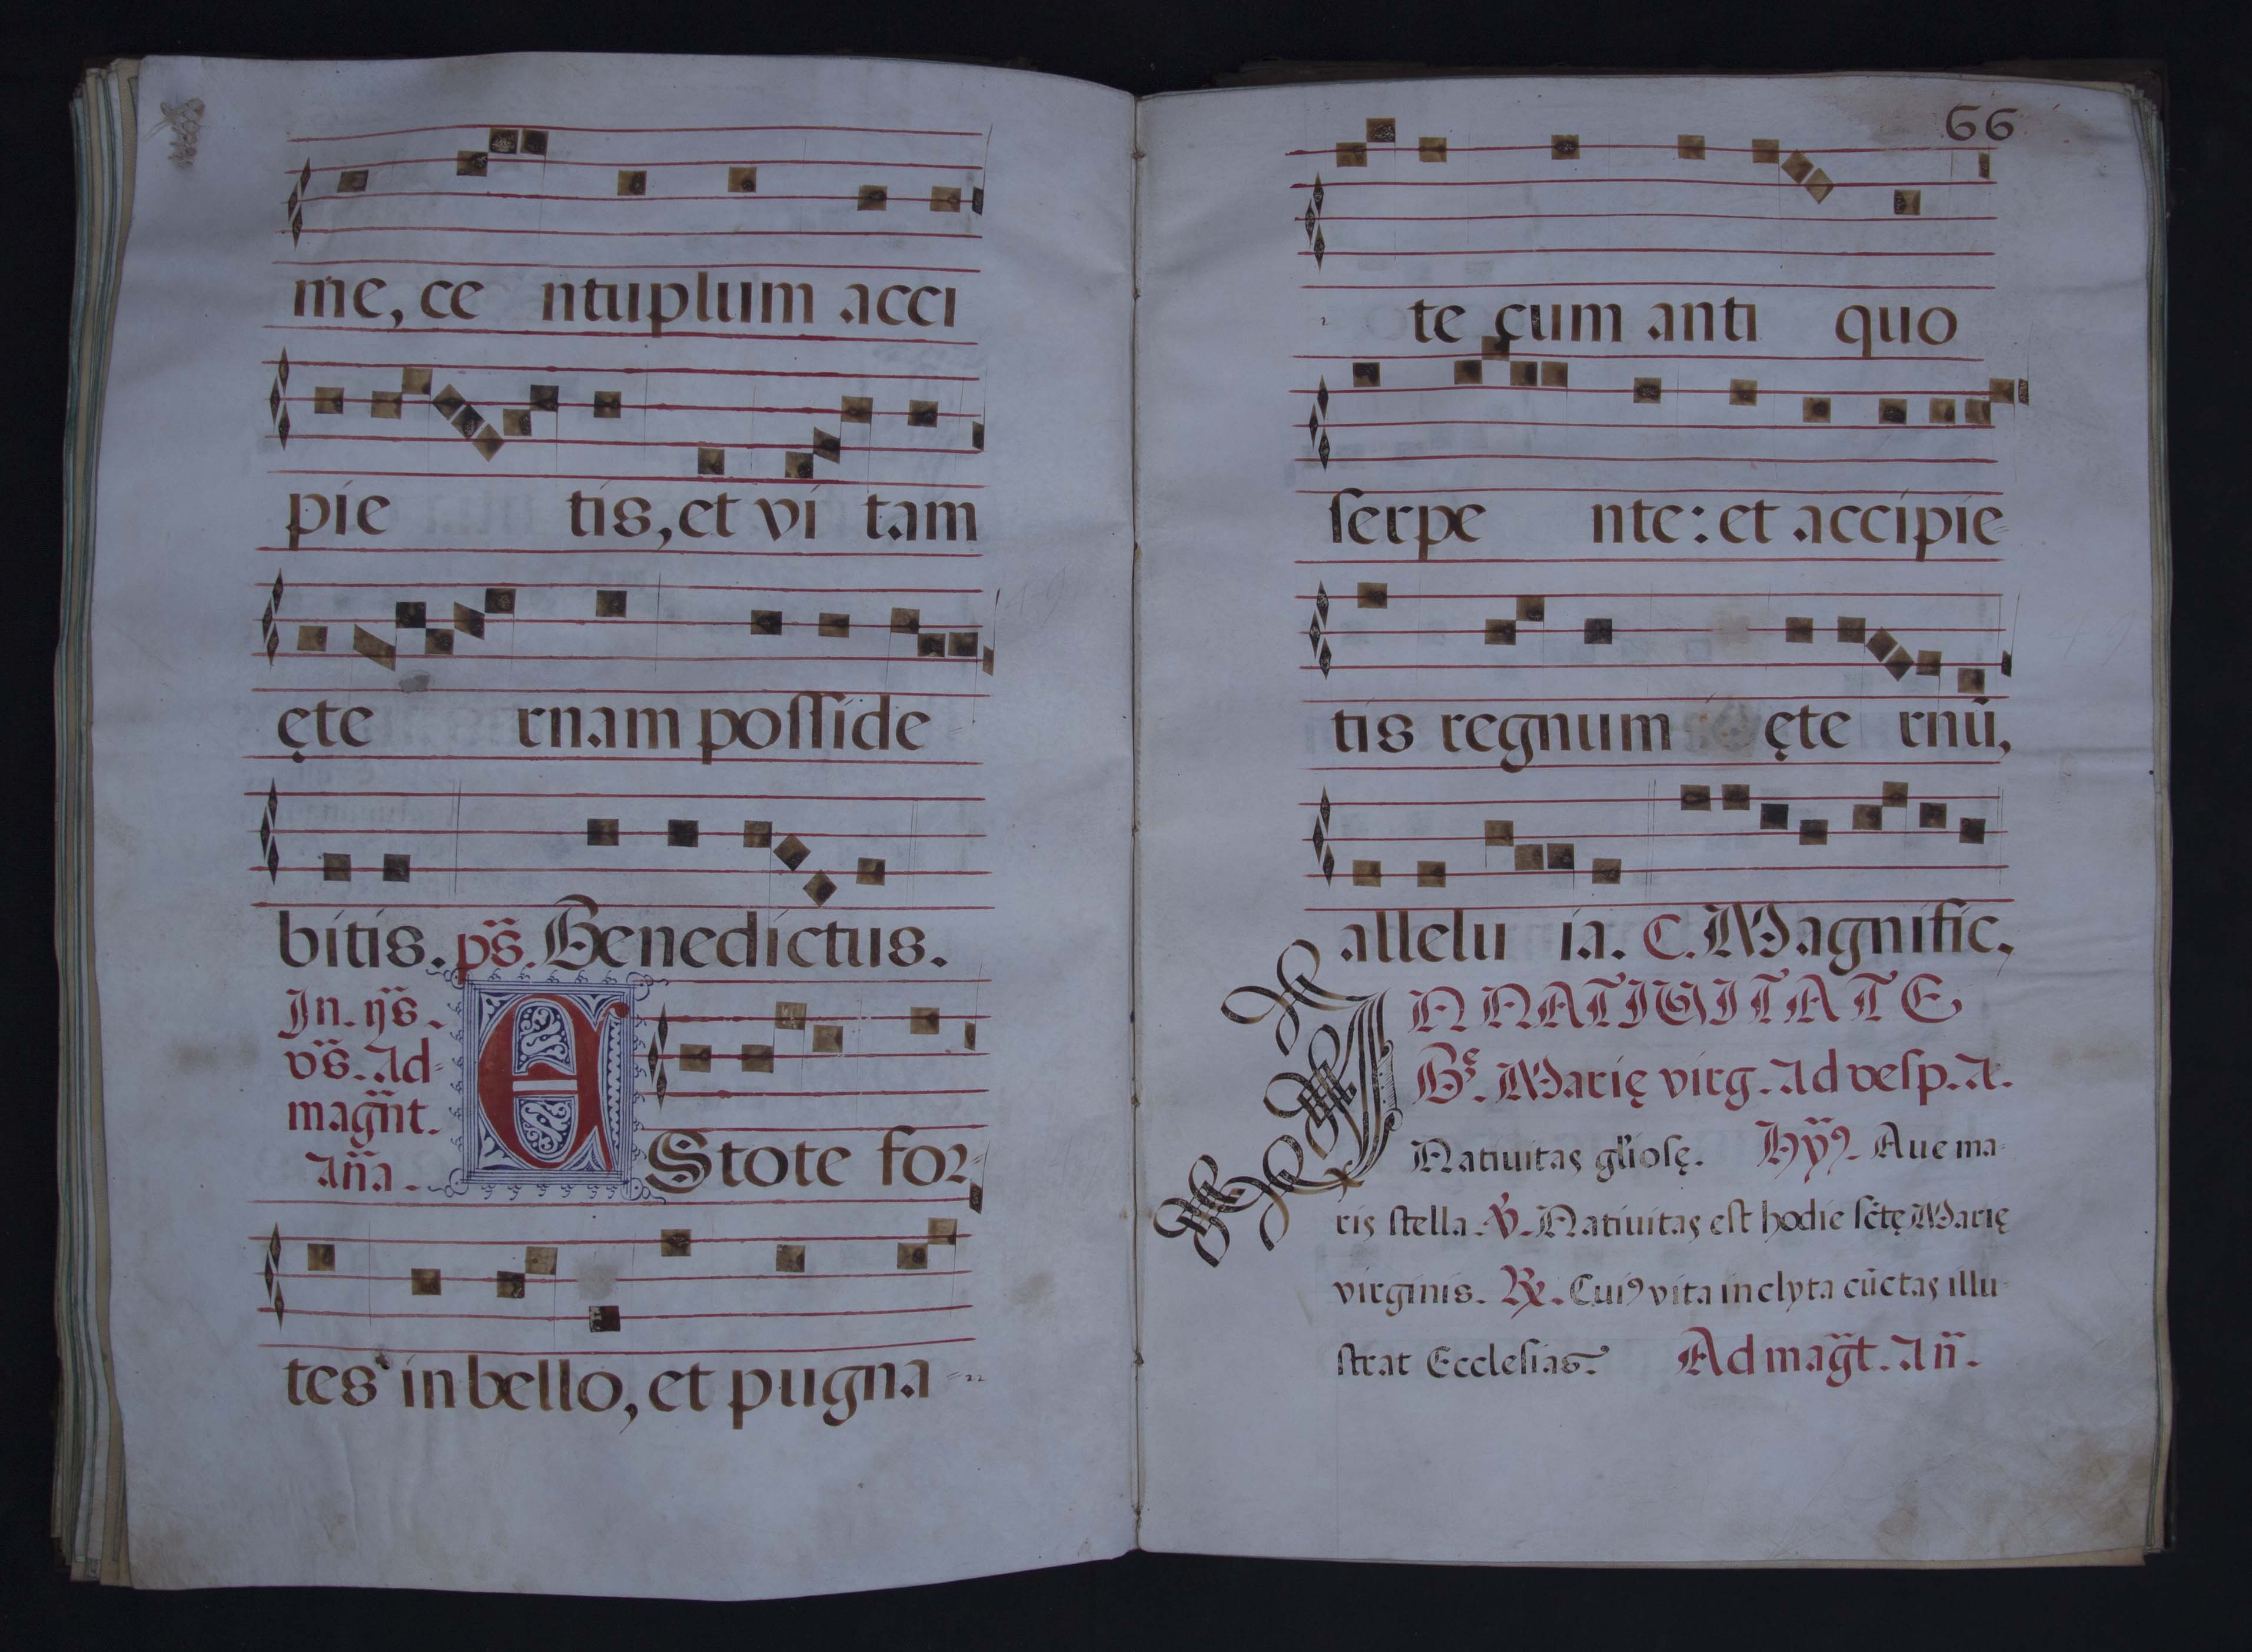 me, ce ntuplum acci
pie tis, et vi tam
ęte rnam poſſide
bitis. ps̃. Benedictus.
In. ijs̃.
vs̃. Ad-
mag̃nt.
Añа.
EStote for-
tes in bello, et pugna-
66
te cum anti quo
ſerpe nte: et accipie-
tis regnum ęte rnũ,
allelu ia. C. Magnific,
IN NATIVITATE
Bͤ. Marię virg. Ad veſp. A.
Natiuitas gl'ioſę. Hỹ9. Aue ma-
ris ſtella. ℣. Natiuitas eſt hodie ſc̃tę Marię
virginis. ℞. Cui9 vita inclyta cũctas illu-
ſtrat Eccleſias. Ad mag̃t. Añ.